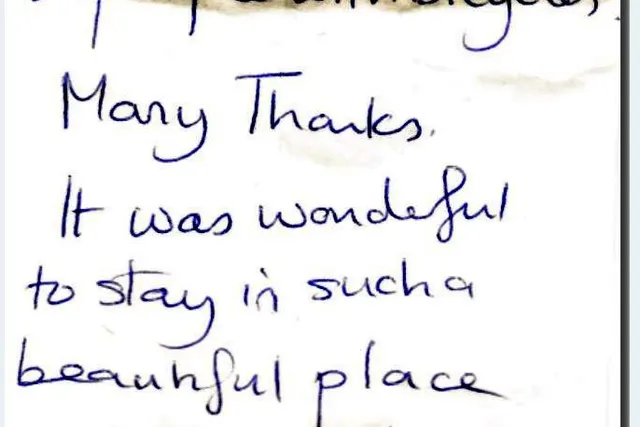 Many Thanks.
It was wonderful
to stay in such a
beautiful place